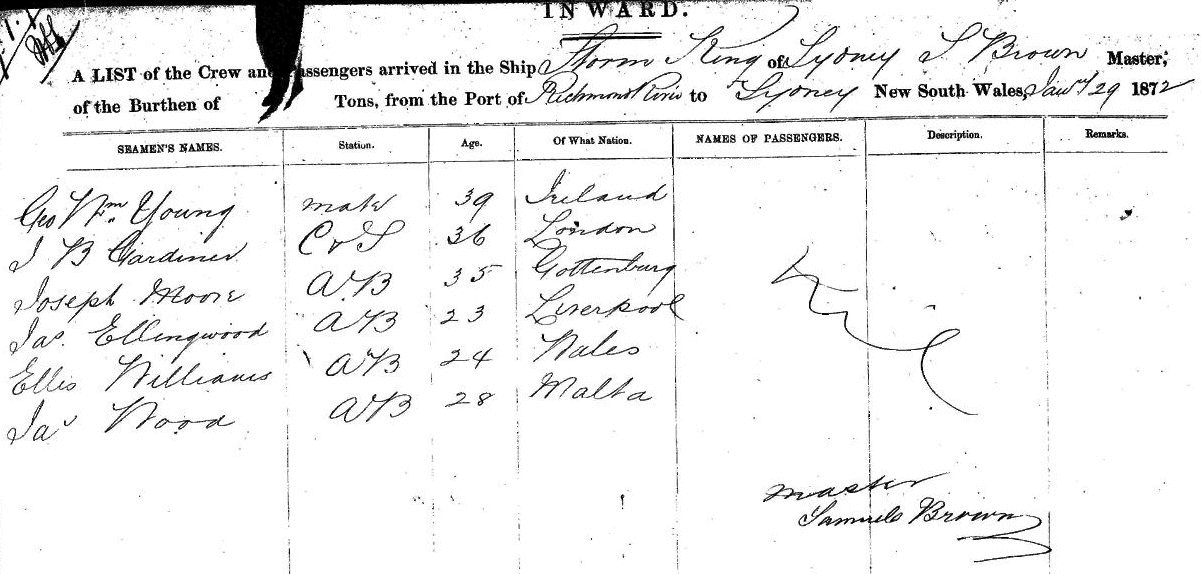 INWARD.
A LIST of the Crew and Passengers arrived in the Ship Storm King of Sydney S Brown Master,
of the Burthen of Tons, from the Port of Richmond River to Sydney New South Wales, Jany 29 1872
SEAMEN'S NAMES. Station. Age. Of What Nation. NAMES OF PASSENGERS. Description. Remarks.
Geo Wm Young mate 39 Ireland
J B Gardiner C & S 36 London
Joseph Moore AB 35 Gottenburg
Jas. Ellingwood AB 23 Liverpool
Ellis Williams AB 24 Wales
Jas Wood AB 28 Malta
Nil
master
Samuel Brown